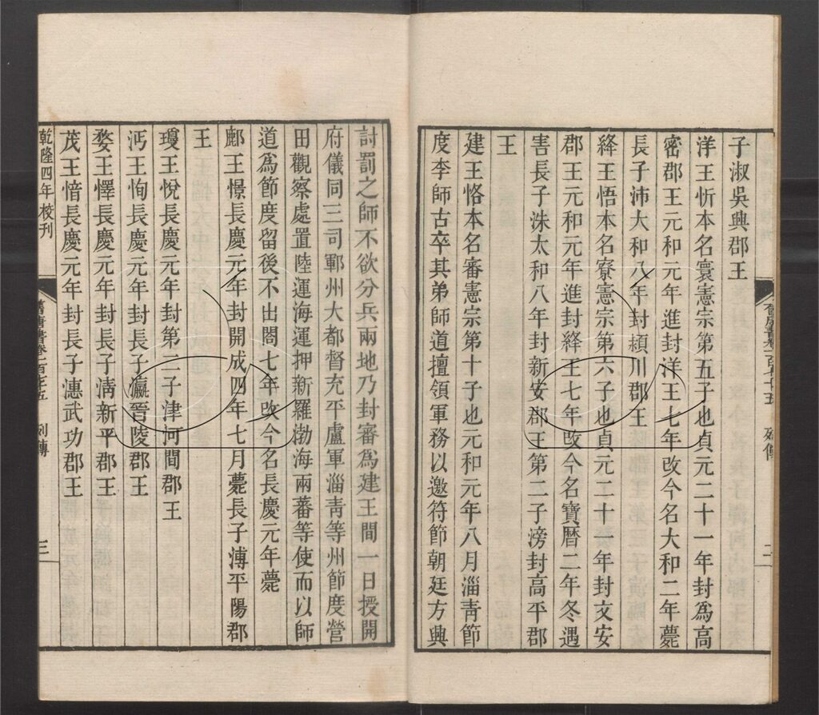 子淑吳興郡王
洋王忻本名寰憲宗第五子也貞元二十一年封爲高
密郡王元和元年進封洋王七年改今名大和二年薨
長子沛大和八年封潁川郡王
絳王悟本名寮憲宗第六子也貞元二十一年封文安
郡王元和元年進封絳王七年改今名寶曆二年冬遇
害長子洙太和八年封新安郡王第二子滂封高平郡
王
建王恪本名審憲宗第十子也元和元年八月淄靑節
度李師古卒其弟師道擅領軍務以邀符節朝廷方興
二
討罰之師不欲分兵兩地乃封審爲建王間一日授開
府儀同三司鄆州大都督充平盧軍淄靑等州節度營
田觀察處置陸運海運押新羅渤海兩蕃等使而以師
道爲節度留後不出閤七年改今名長慶元年薨
鄜王憬長慶元年封開成四年七月薨長子溥平陽郡
王
瓊王悅長慶元年封第二子津河間郡王
沔王恂長慶元年封長子瀛晉陵郡王
婺王懌長慶元年封長子淸新平郡王
茂王愔長慶元年封長子潓武功郡王
乾隆四年校刊 舊唐書卷一百七十五 列傳 三